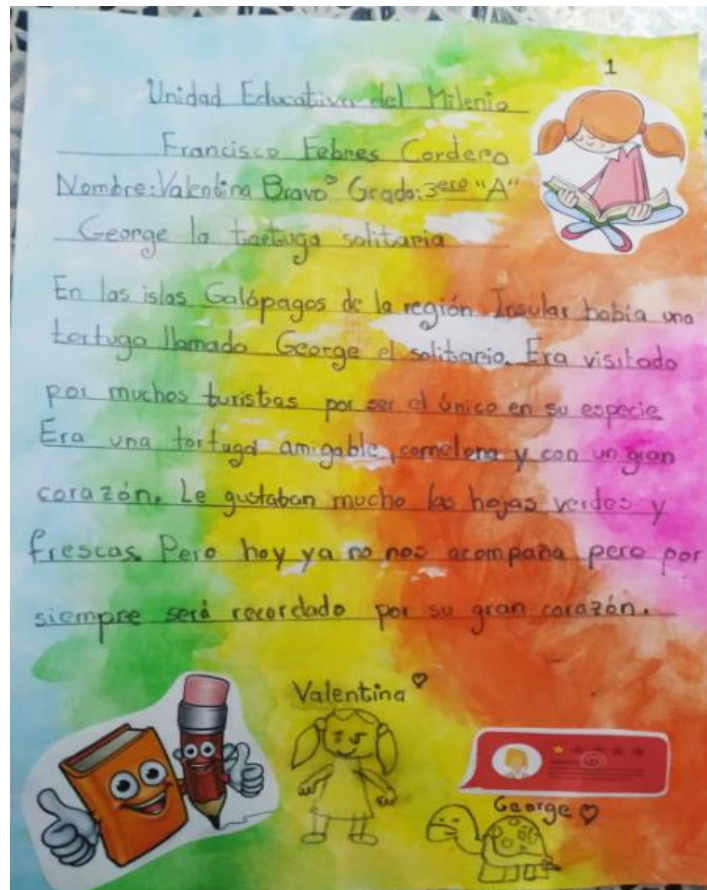 1
Unidad Educativa del Milenio
Francisco Febres Cordero
Nombre: Valentina Bravo Grado: 3ero "A"
George la tortuga solitaria
En las islas Galápagos de la región Insular había una
tortuga llamado George el solitario. Era visitado
por muchos turistas por ser el único en su especie
Era una tortuga amigable, comelona y con un gran
corazón. Le gustaban mucho las hojas verdes y
frescas. Pero hoy ya no nos acompaña pero por
siempre será recordado por su gran corazón.
Valentina
George